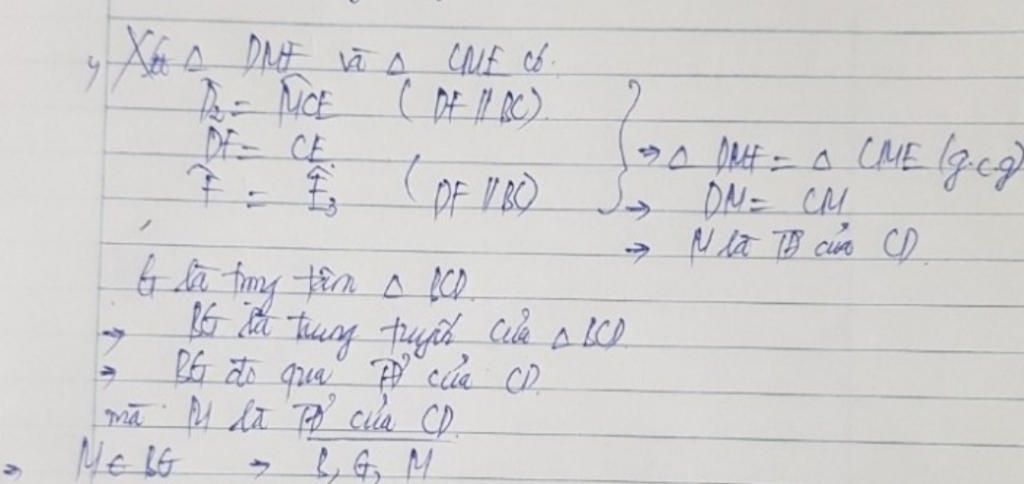 Xét Δ DMF và Δ CME có:
D̂₂ = M̂CE ( DF // BC)
DF = CE
F̂ = Ê₃ ( DF // BC)
⇒ Δ DMF = Δ CME (g.c.g)
⇒ DM = CM
⇒ M là TĐ của CD
G là trọng tâm Δ BCD
⇒ BG là trung tuyến của Δ BCD
⇒ BG đi qua TĐ của CD
mà M là TĐ của CD
⇒ M ∈ BG ⇒ B, G, M